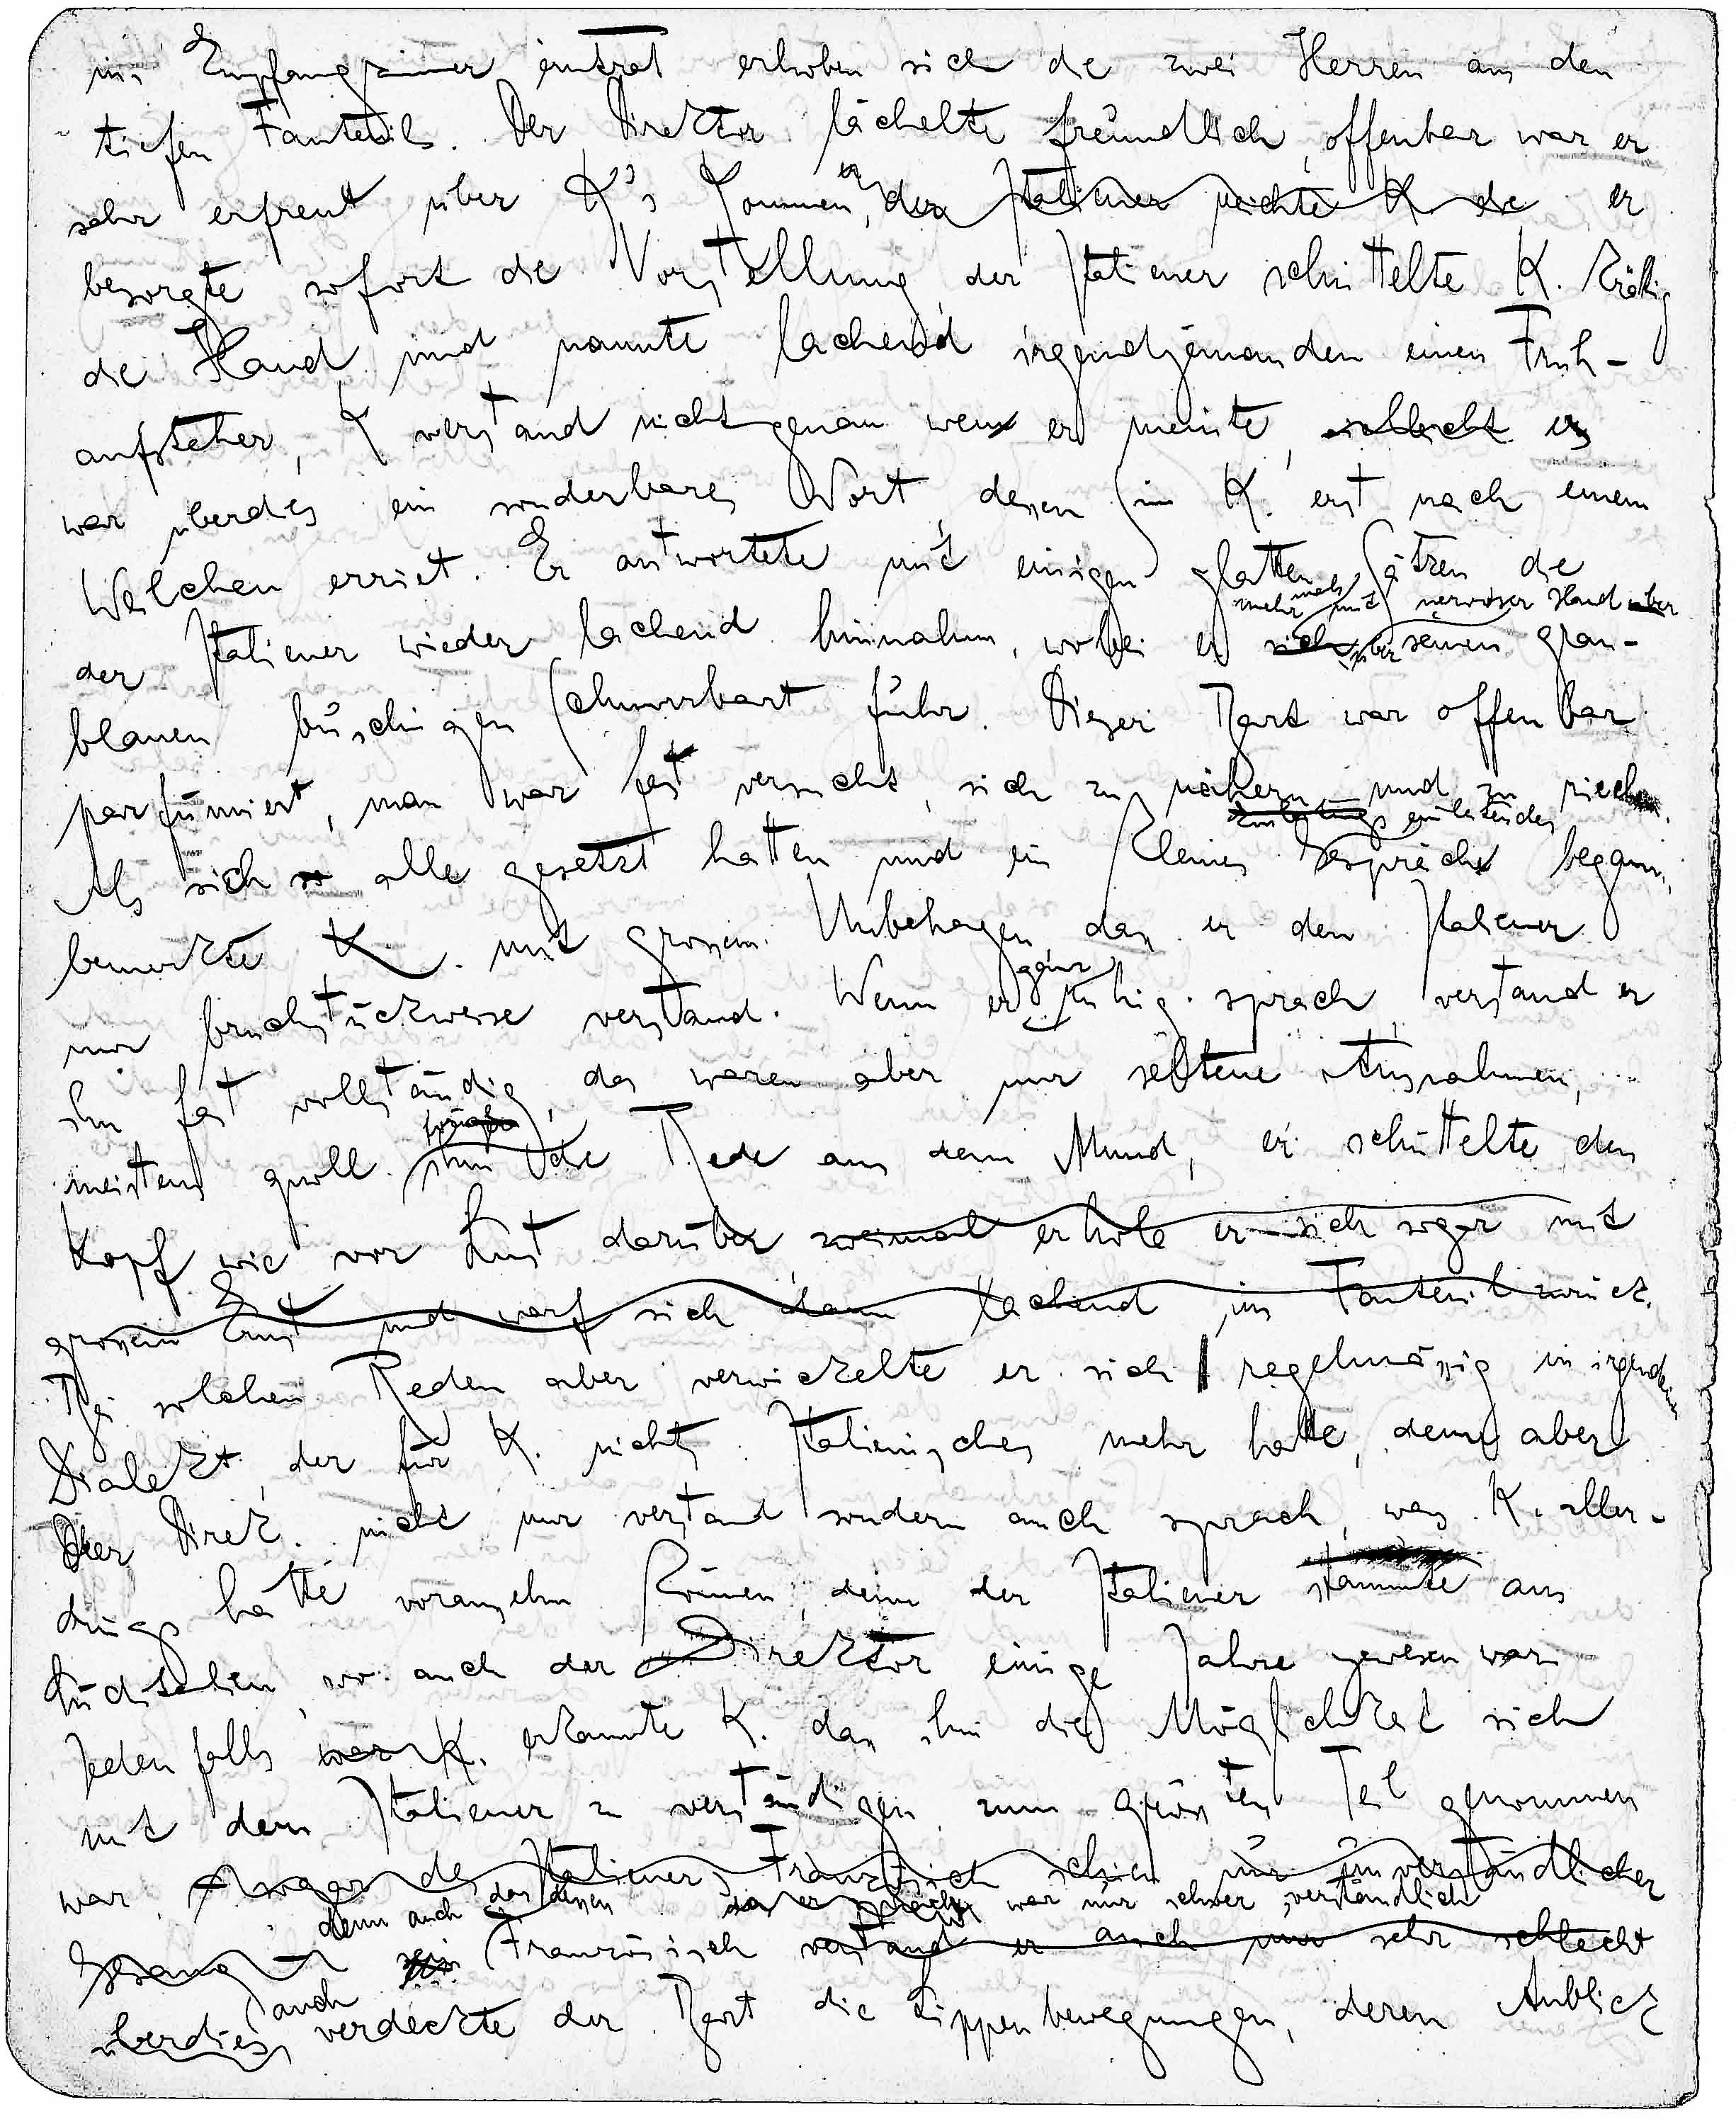 ins Empfangszimmer eintrat erhoben sich die zwei Herren aus den
tiefen Fauteuils. Der Direktor lächelte freundlich, offenbar war er
sehr erfreut über K's Kommen, er der Italiener reichte K. die er
besorgte sofort die Vorstellung, der Italiener schüttelte K. kräftig
die Hand und nannte lachend irgendjemanden einen Früh-
aufsteher, K verstand nicht genau wen er meinte, vielleicht es
war überdies ein sonderbares Wort, dessen Sinn K. erst nach einem
Weilchen erriet. Er antwortete mit einigen glatten Sätzen die
mehrmals mit nervöser Hand über
der Italiener wieder lachend hinnahm, wobei er sich über seinen grau-
blauen buschigen Schnurrbart fuhr. Dieser Bart war offenbar
parfümiert, man war fast versucht, sich zu nähern und zu riechen.
Einleitungs einleitendes
Als sich so alle gesetzt hatten und ein kleines Gespräch begann,
bemerkte K. mit grossem Unbehagen, dass er den Italiener
nur bruchstückweise verstand. Wenn er ganz ruhig sprach verstand er
ihn fast vollständig, das waren aber nur seltene Ausnahmen,
meistens quoll ihm die Rede aus dem Mund, er schüttelte den
Kopf wie vor Lust darüber zweimal erhob er sich sogar mit
grossem Ernst und warf sich dann lachend im Fauteuil zurück.
Bei solchen Reden aber verwickelte er sich regelmässig in irgendeinen
Dialekt, der für K. nichts Italienisches mehr hatte, den aber
der Direk. nicht nur verstand sondern auch sprach, was K. aller-
dings hätte voraussehn können, denn der Italiener stammte aus
Süditalien, wo auch der Direktor einige Jahre gewesen war.
Jedenfalls war K. erkannte K. dass ihm die Möglichkeit sich
mit dem Italiener zu verständigen zum grössten Teil genommen
war, sogar des Italieners Französisch schien nur unverständlicher
denn auch das dessen das er sprach war nur schwer verständlich
Gesang sein Französisch verstand er auch nur sehr schlecht
auch
überdies verdeckte der Bart die Lippenbewegungen, deren Anblick